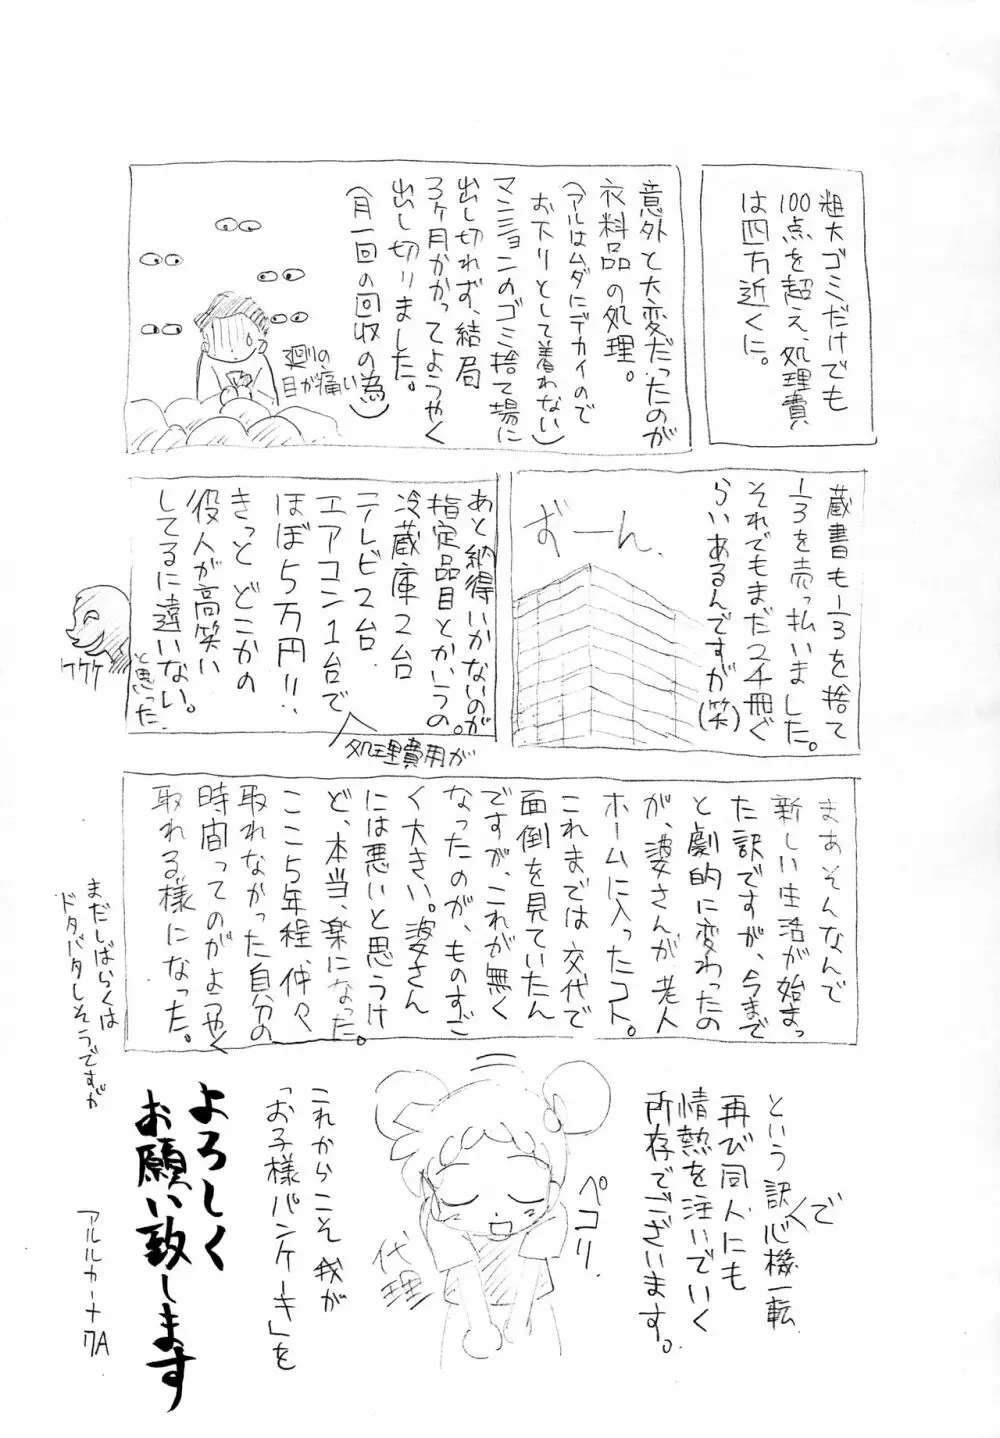 粗大ゴミだけでも
100点を超え、処理費
は四万近くに。
意外と大変だったのが
衣料品の処理。
(アルはムダにデカイので
お下りとして着れない)
マンションのゴミ捨て場に
出し切れず、結局
3ヶ月かかってようやく
出し切りました。
(月一回の回収の為)
廻りの
目が痛い
蔵書も⅓を捨て
⅓を売っ払いました。
それでもまだ2千冊ぐ
らいあるんですが(笑)
ずーん、
あと納得いかないのが
指定品目とかいうの。
冷蔵庫2台
テレビ2台、
エアコン1台で
処理費用が
ほぼ5万円!!
きっとどこかの
役人が高笑い
してるに違いない。
と思った
ケケケ
まあそんなんで
新しい生活が始まっ
た訳ですが、今まで
と劇的に変わったの
が、婆さんが、老人
ホームに入ったコト。
これまでは交代で
面倒を見ていたん
ですが、これが無く
なったのが、ものすご
く大きい。婆さん
には悪いと思うけ
ど、本当、楽になった。
ここ5年程、仲々
取れなかった自分の
時間ってのがようやく
取れる様になった。
まだしばらくは
ドタバタしそうですが
という訳で
心機一転
再び同人にも
情熱を注いでいく
所存でございます。
ペコリ、
代理
これからこそ我が
「お子様パンケーキ」を
よろしく
お願い致します
アルルカーナ7A